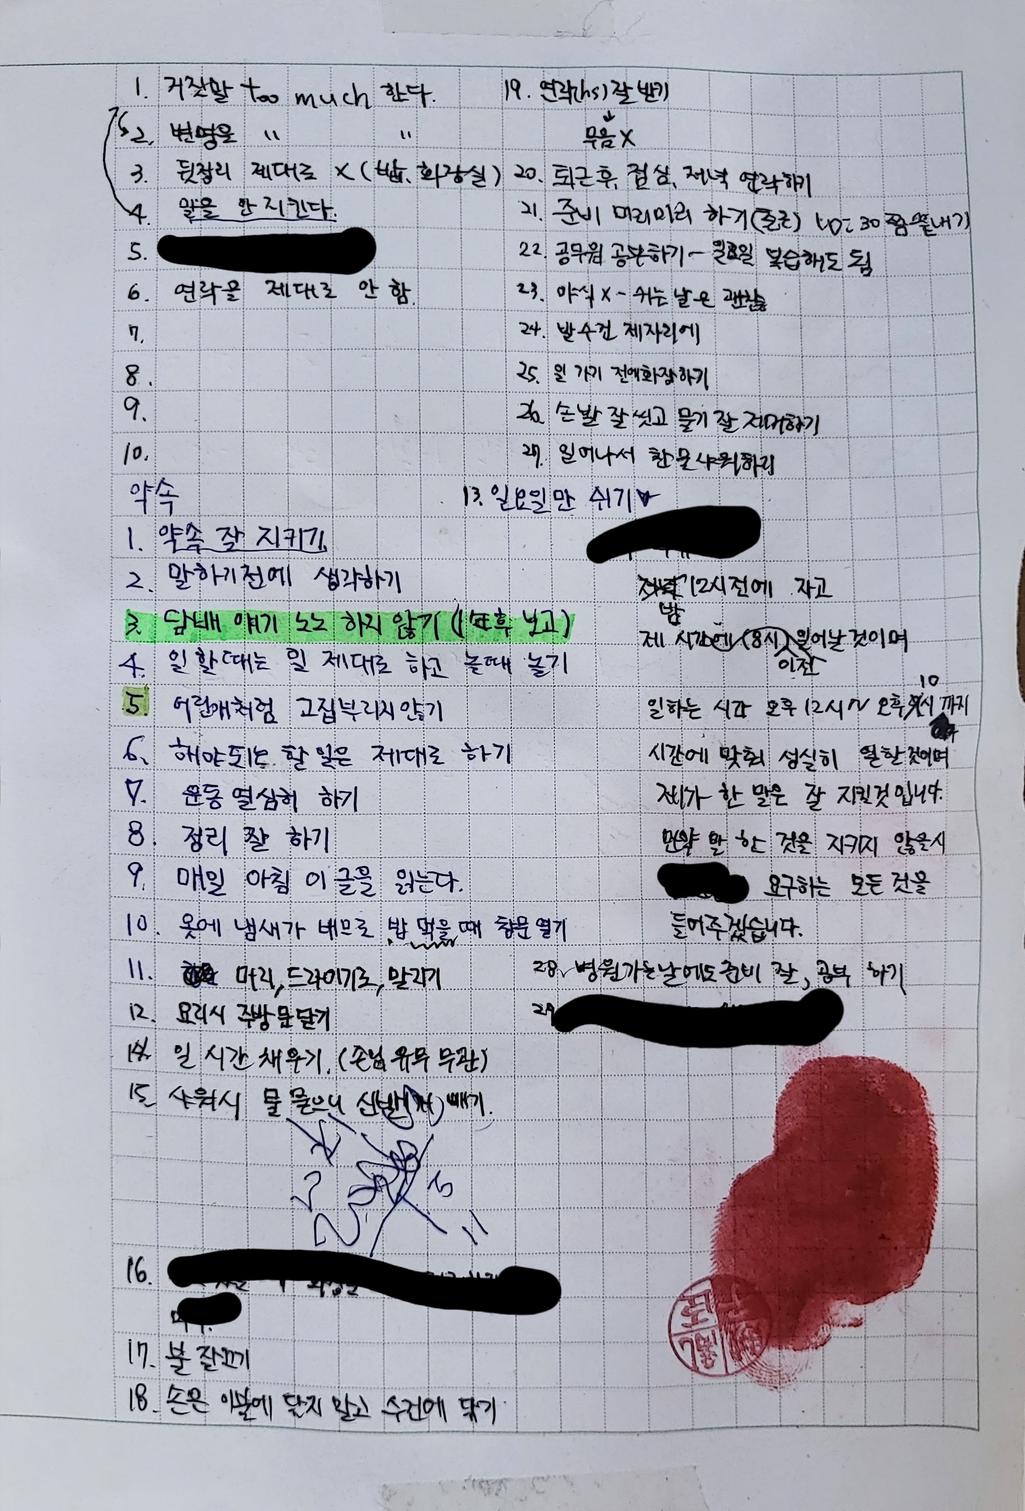 1. 거짓말 too much 한다.
2. 변명을 " "
3. 뒷정리 제대로 X (밥, 화장실)
4. 말을 안 지킨다.
5.
6. 연락을 제대로 안 함.
7.
8.
9.
10.
19. 연락(hs) 잘 받기
무음 X
20. 퇴근 후, 점심, 저녁 연락하기
21. 준비 미리미리 하기 30 끝내기
22. 공무원 공부하기 - 일요일 복습해도 됨
23. 야식 X - 쉬는 날은 괜찮
24. 발수건 제자리에
25. 일 가기 전에 화장하기
26. 손 발 잘 씻고 물기 잘 제거하기
27. 일어나서 찬물 샤워하기
약속
1. 약속 잘 지키기
2. 말하기 전에 생각하기
3. 담배 얘기 노노 하지 않기 (1년후 보고)
4. 일 할때는 일 제대로 하고 놀때 놀기
5. 어린애처럼 고집부리지 않기
6. 해야되는 할 일은 제대로 하기
7. 운동 열심히 하기
8. 정리 잘 하기
9. 매일 아침 이 글을 읽는다.
10. 옷에 냄새가 배므로 밥 먹을 때 창문 열기
11. 머리, 드라이기로, 말리기
12. 요리시 주방문 닫기
14. 일 시간 채우기. (손님 유무 무관)
15. 샤워시 물 묻으니 빼기.
16.
17. 불 잘끄기
18. 손은 이불에 닦지 말고 수건에 닦기
13. 일요일만 쉬기
밤 12시전에 자고
제 시간에 (8시) 일어날 것이며
이전
일하는 시간 오후 12시 ~ 오후 10시 까지
시간에 맞춰 성실히 일할 것이며
제가 한 말은 잘 지킬것 입니다.
만약 말 한 것을 지키지 않을시
요구하는 모든 것을
들어주겠습니다.
28. 병원가는날에도 준비 잘, 공부 하기
29